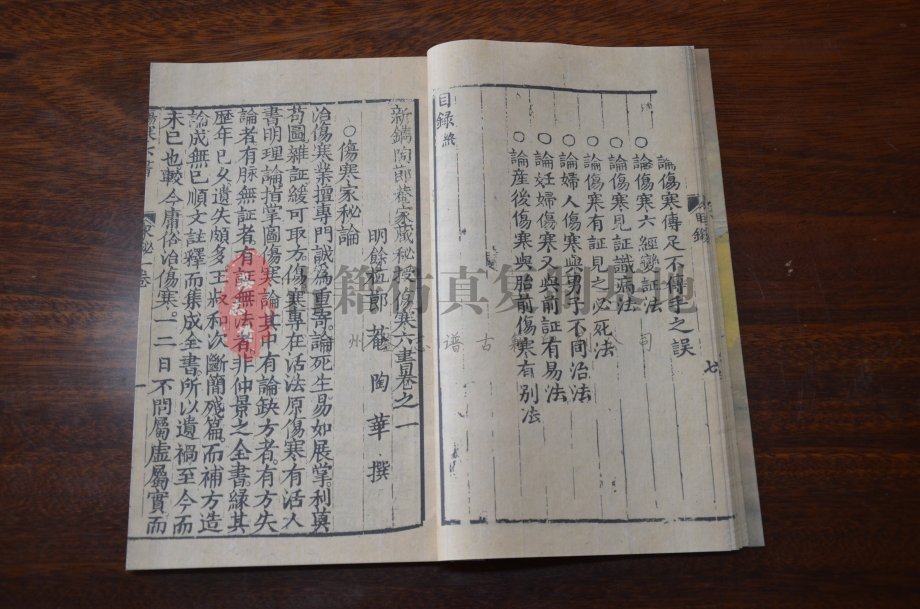 論傷寒傳足不傳手之誤
○論傷寒六經變証法
○論傷寒見証識病法
○論傷寒有証見之必死法
○論婦人傷寒與男子不同治法
○論妊婦傷寒又與前証有易法
○論產後傷寒與胎前傷寒有別法
目錄終
目錄
七
新鐫陶節菴家藏秘授傷寒六書卷之一
明餘杭節菴陶華撰
○傷寒家秘論
治傷寒業擅專門誠為重寄論死生易如展掌利真
苟圖雜証緩可取方傷寒專在活法原傷寒有活人
書明理論指掌圖傷寒論其中有論缺方者有方失
論者有脉無証者有証無法者非仲景之全書緣其
歷年已久遺失頗多王叔和次斷簡殘篇而補方造
論成無已順文註釋而集成全書所以遺禍至今而
未已也較今庸俗治傷寒一二日不問屬虛屬實而
傷寒六書
家秘一卷
一
古籍仿真复制基地